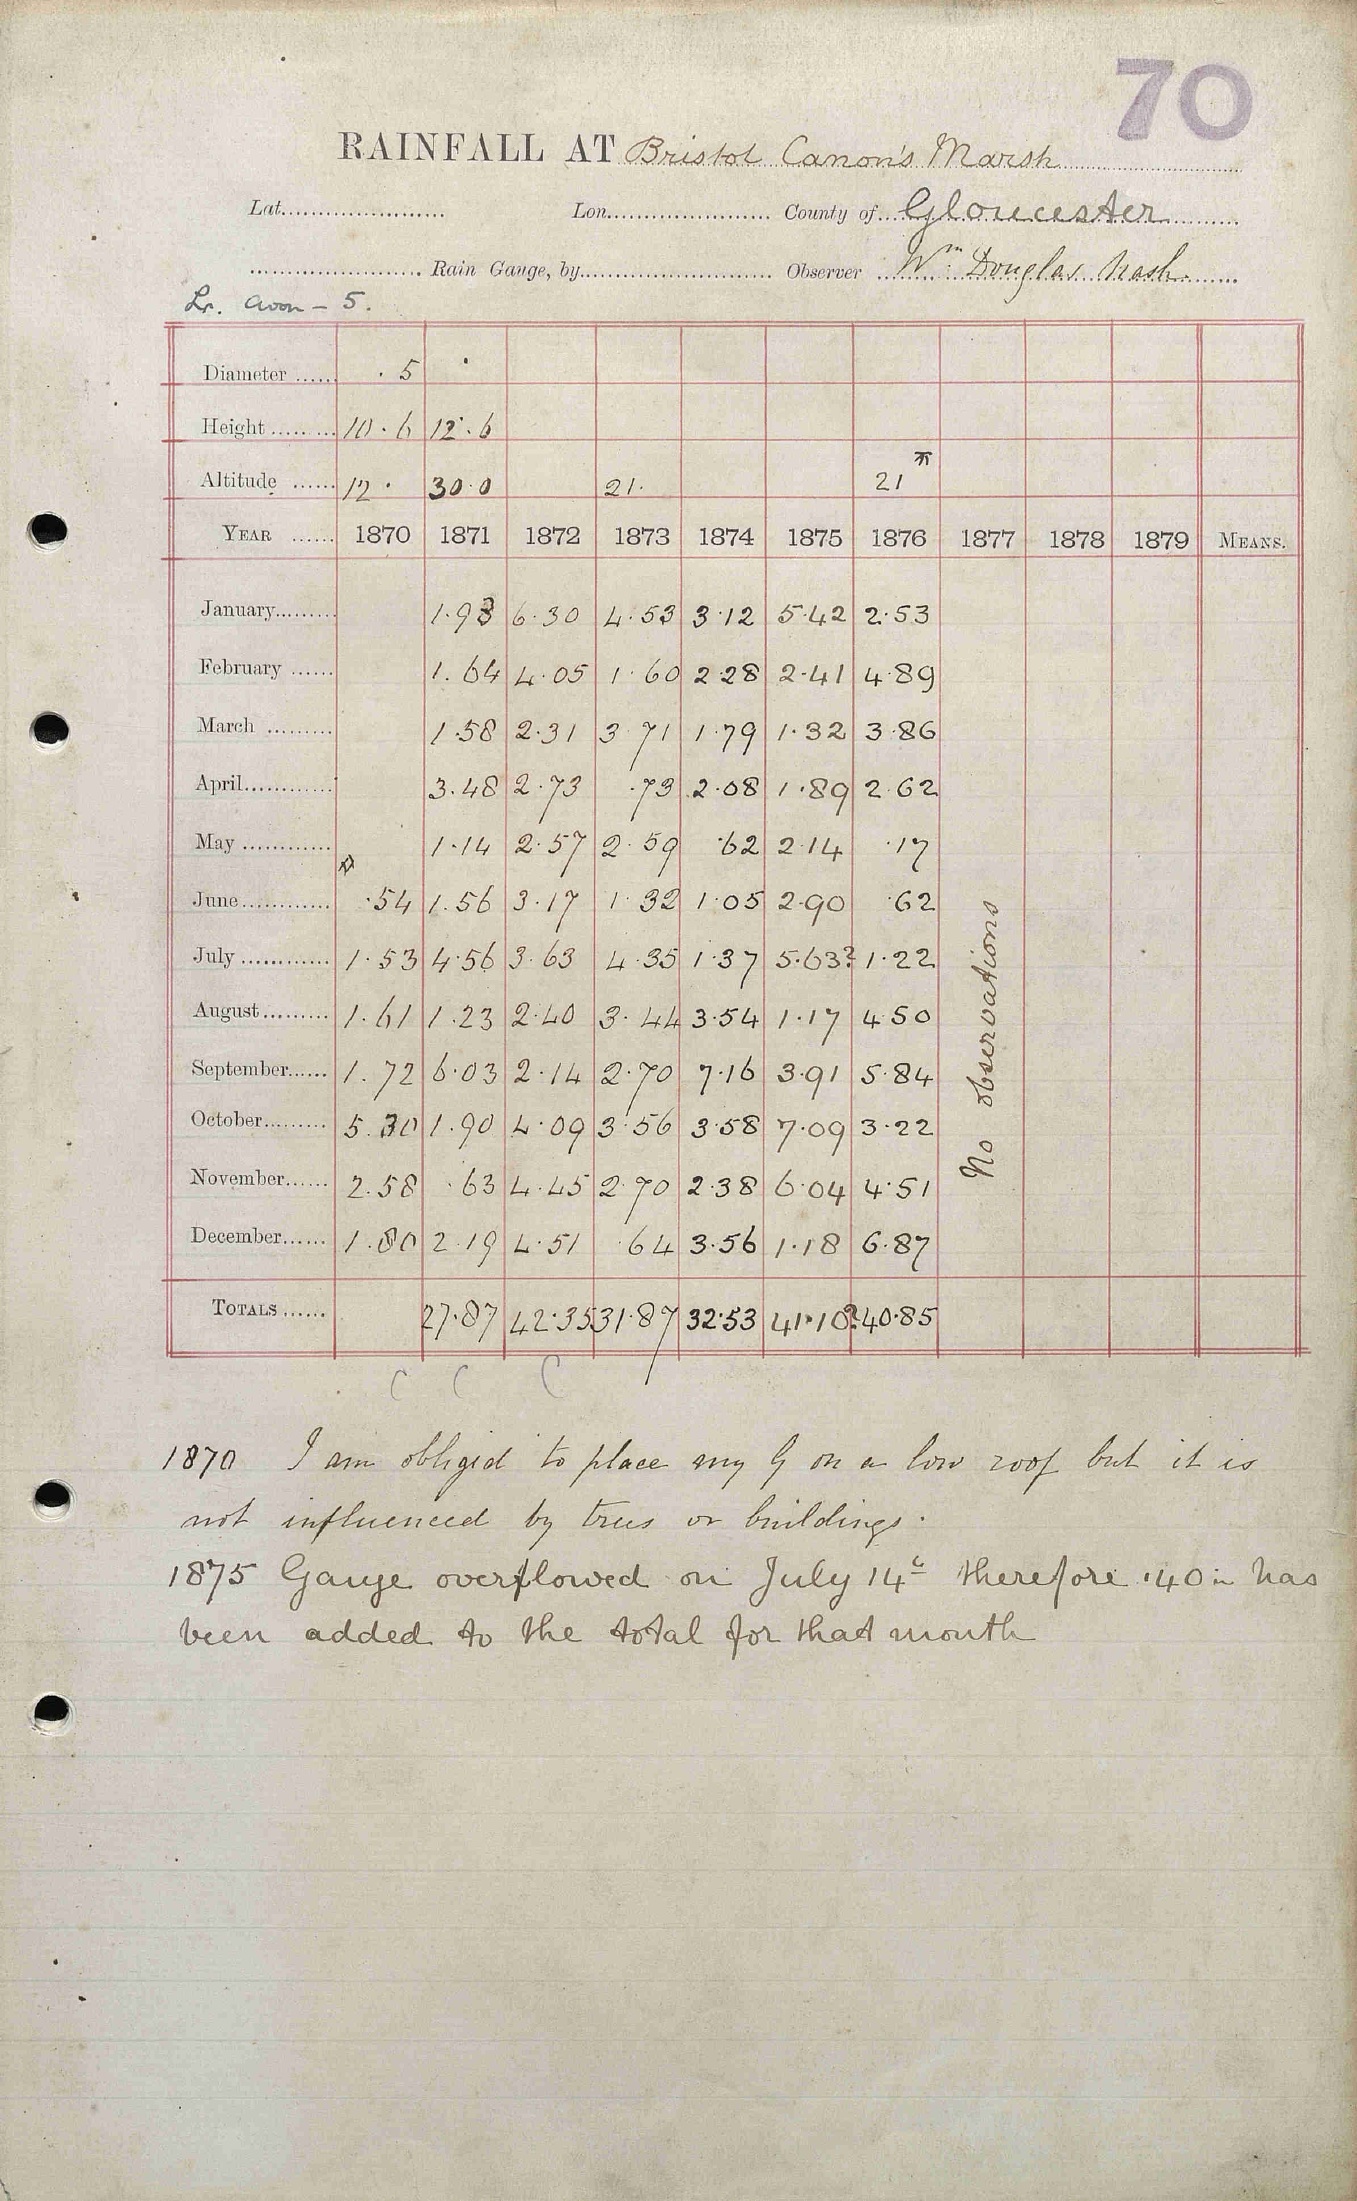 70
RAINFALL AT Bristol Canon's Marsh
Lat. Lon. County of Gloucester
Rain Gauge, by Observer Wm Douglas Nash.
Lr. Avon - 5.
Diameter · 5
Height 10·6 12·6
Altitude 12· 30·0 21· 21
YEAR 1870 1871 1872 1873 1874 1875 1876 1877 1878 1879 MEANS.
January 1·93 6·30 4·53 3·12 5·42 2·53
February 1·64 4·05 1·60 2·28 2·41 4·89
March 1·58 2·31 3·71 1·79 1·32 3·86
April 3·48 2·73 ·73 2·08 1·89 2·62
May 1·14 2·57 2·59 ·62 2·14 ·17
June ·54 1·56 3·17 1·32 1·05 2·90 ·62
July 1·53 4·56 3·63 4·35 1·37 5·63? 1·22
August 1·61 1·23 2·40 3·44 3·54 1·17 4·50
September 1·72 6·03 2·14 2·70 7·16 3·91 5·84
October 5·30 1·90 4·09 3·56 3·58 7·09 3·22
November 2·58 ·63 4·45 2·70 2·38 6·04 4·51
December 1·80 2·19 4·51 ·64 3·56 1·18 6·87
No observations
TOTALS 27·87 42·35 31·87 32·53 41·10? 40·85
1870 I am obliged to place my G on a low roof but it is
not influenced by trees or buildings.
1875 Gauge overflowed on July 14th therefore ·40 in has
been added to the total for that month